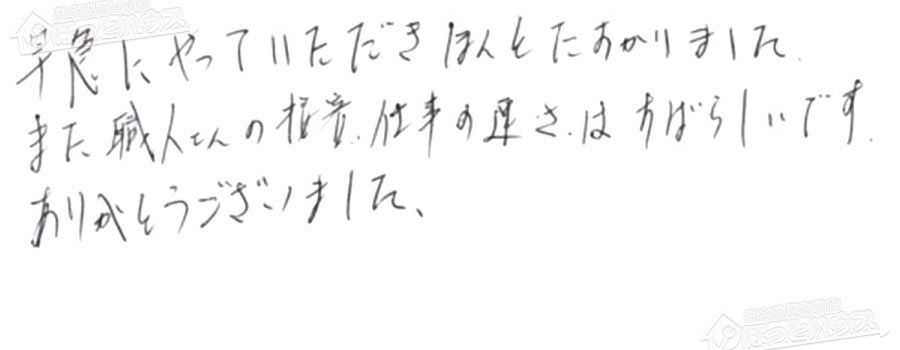 早急にやっていただきほんとたすかりました
また職人さんの接客.仕事の速さ.はすばらしいです.
ありがとうございました、
住宅設備専門店
ほっとハウス